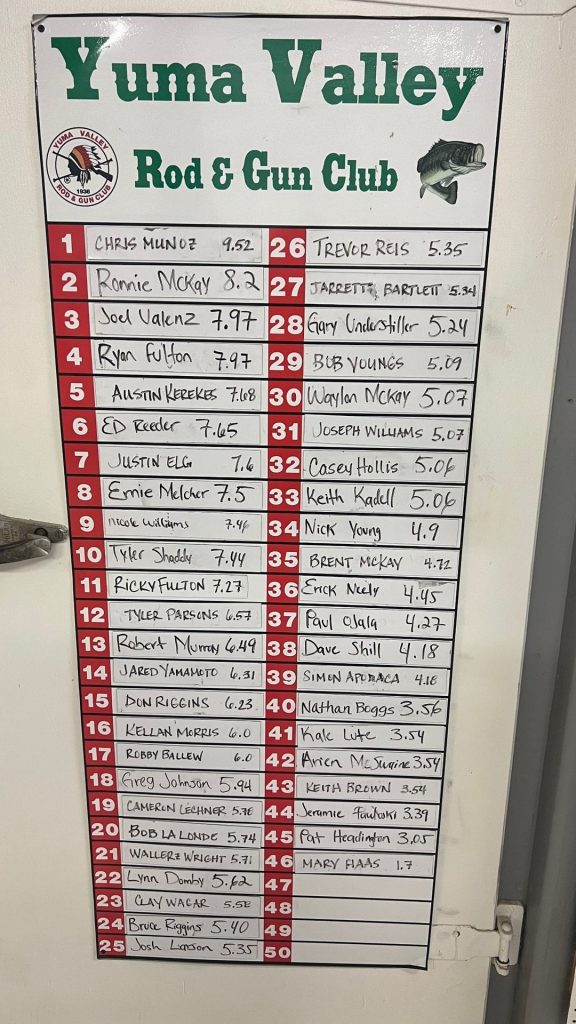 Yuma Valley
YUMA VALLEY
ROD & GUN CLUB
1936
Rod & Gun Club
1 CHRIS MUNOZ 9.52
2 Ronnie McKay 8.2
3 Joel Valenz 7.97
4 Ryan Fulton 7.97
5 AUSTIN KEREKES 7.68
6 ED Reeder 7.65
7 JUSTIN ELG 7.6
8 Ernie Melcher 7.5
9 nicole williams 7.46
10 Tyler Shaddy 7.44
11 RICKY FULTON 7.27
12 TYLER PARSONS 6.57
13 Robert Murray 6.49
14 JARED YAMAMOTO 6.31
15 DON RIGGINS 6.23
16 KELLAN MORRIS 6.0
17 ROBBY BALLEW 6.0
18 Greg Johnson 5.94
19 CAMERON LECHNER
20 BOB LA LONDE 5.74
21 WALLERZ WRIGHT 5.71
22 Lynn Domby 5.62
23 CLAY WAGAR
24 Bruce Riggins 5.40
25 Josh Larson 5.35
26 TREVOR REIS 5.35
27 JARRETT BARTLETT 5.34
28 Gary Understiller 5.24
29 BOB YOUNGS 5.09
30 Waylon McKay 5.07
31 JOSEPH WILLIAMS 5.07
32 Casey Hollis 5.06
33 Keith Kadell 5.06
34 Nick Young 4.9
35 BRENT MCKAY 4.72
36 Erick Neely 4.45
37 Paul Ojala 4.27
38 Dave Shill 4.18
39 SIMON APODACA
40 Nathan Boggs 3.56
41 Kale Lute 3.54
42 Arien 3.54
43 KEITH BROWN 3.54
44 Jeramie 3.39
45 Pat Headington 3.05
46 MARY HAAS 1.7
47
48
49
50